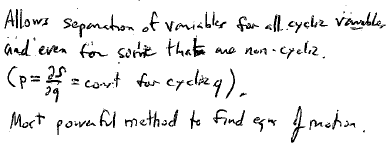 Allows separation of variables for all cyclic variables,
and even for some that are non-cyclic.
(p = ∂S/∂q = const for cyclic q).
Most powerful method to find eqns of motion.